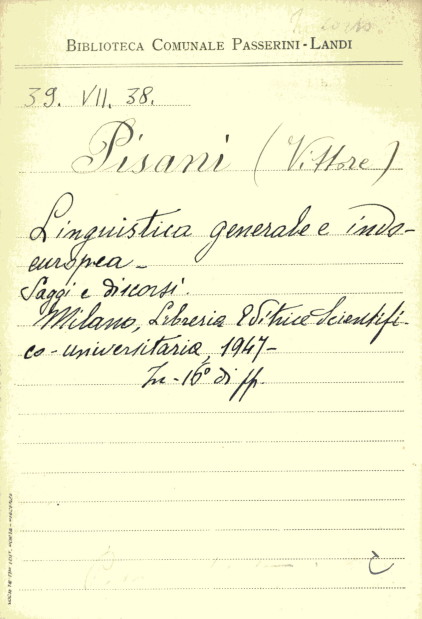 In corso.
BIBLIOTECA COMUNALE PASSERINI-LANDI
39. VII. 38.
Pisani (Vittore)
Linguistica generale e indo-
europea -
Saggi e discorsi.
Milano, Libreria Editrice Scientifi-
co-universitaria, 1947-
In-16° di pp.
C